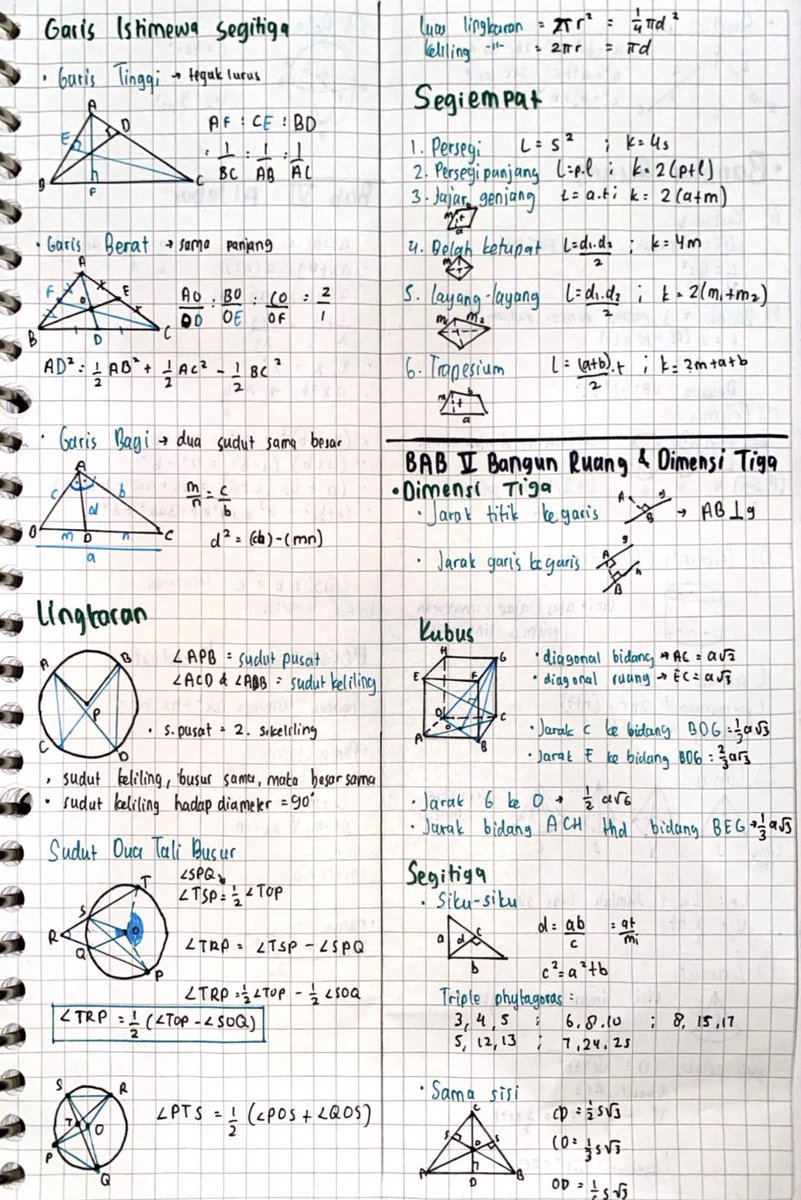 Garis Istimewa Segitiga
• Garis Tinggi → tegak lurus
A
E D
B F C
AF : CE : BD
: 1/BC : 1/AB : 1/AC
• Garis Berat → sama panjang
A
F E
O
B D C
AO/OD : BO/OE : CO/OF : 2/1
AD² = 1/2 AB² + 1/2 AC² - 1/2 BC²
• Garis Bagi → dua sudut sama besar
A
c d b
m D n C
a
m/n = c/b
d² = (cb) - (mn)
Lingkaran
A B
P
C D
∠APB = sudut pusat
∠ACD & ∠ADB = sudut keliling
• s.pusat = 2. s.keliling
• sudut keliling, busur sama, maka besar sama
• sudut keliling hadap diameter = 90°
Sudut Dua Tali Busur
T
S
R O
Q
P
∠SPQ
∠TSP = 1/2 ∠TOP
∠TRP = ∠TSP - ∠SPQ
∠TRP = 1/2 ∠TOP - 1/2 ∠SOQ
∠TRP = 1/2 (∠TOP - ∠SOQ)
S R
T O
P
Q
∠PTS = 1/2 (∠POS + ∠QOS)
luas lingkaran = 2πr² = 1/4 πd²
keliling -"- = 2πr = πd
Segiempat
1. Persegi L = s² ; k = 4s
2. Persegi panjang L = p.l ; k = 2(p+l)
3. Jajar genjang L = a.t ; k = 2(a+m)
m t
a
4. Belah ketupat L = d₁.d₂/2 ; k = 4m
m
5. Layang-layang L = d₁.d₂/2 ; k = 2(m₁+m₂)
m₁ m₂
6. Trapesium L = (a+b)/2 .t ; k = 2m+a+b
m b
t
a
BAB V Bangun Ruang & Dimensi Tiga
• Dimensi Tiga
• Jarak titik ke garis A B g → AB⊥g
• Jarak garis ke garis A g B h
Kubus
H G
E F
D O C
A B
• diagonal bidang → AC = a√2
• diagonal ruang → EC = a√3
• Jarak C ke bidang BDG = 1/3 a√3
• Jarak E ke bidang BDG = 2/3 a√3
• Jarak G ke O → 1/2 a√6
• Jarak bidang ACH thd bidang BEG → 1/3 a√3
Segitiga
• Siku-siku
a d c
b
d = ab/c = at/mi
c² = a² + b
Triple phytagoras :
3, 4, 5 ; 6, 8, 10 ; 8, 15, 17
5, 12, 13 ; 7, 24, 25
• Sama sisi
C
S O S
A D B
CD = 1/2 s√3
CO = 1/3 s√3
OD = 1/6 s√3